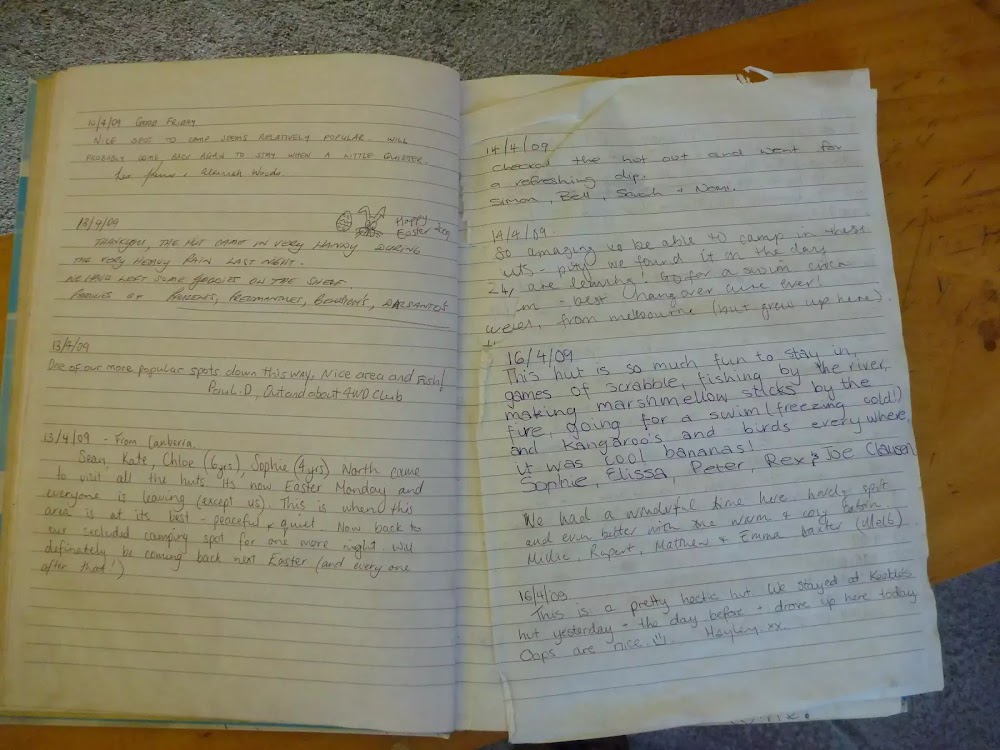 10/4/09 GOOD FRIDAY
NICE SPOT TO CAMP SEEMS RELATIVELY POPULAR WILL
PROBABLY COME BACK AGAIN TO STAY WHEN A LITTLE QUIETER.
Woods
13/4/09
Happy
Easter
THANKYOU, THE HUT CAME IN VERY HANDY DURING
THE VERY HEAVY RAIN LAST NIGHT.
WE HAVE LEFT SOME GOODIES ON THE SHELF.
FAMILIES OF
13/4/09
One of our more popular spots down this way, Nice area and Fish!
Paul.D, Out and about 4WD Club
13/4/09 - From Canberra.
Sean, Kate, Chloe (6yrs), Sophie (4yrs) North came
to visit all the huts. Its now Easter Monday and
everyone is leaving (except us). This is when this
area is at its best - peaceful & quiet. Now back to
our secluded camping spot for one more night. Will
definately be coming back next Easter (and every one
after that!)
14/4/09
Checked the hut out and went for
a refreshing dip.
Simon, Bell, Sarah + Nomi.
14/4/09.
So amazing to be able to camp in these
uts - pity we found it on the day
are leaving! Go for a swim
in - best hangover cure ever!
from melbourne (but grew up here).
16/4/09
This hut is so much fun to stay in,
games of scrabble, fishing by the river,
making marshmellow sticks by the
fire, going for a swim (freezing cold!)
and kangaroo's and birds everywhere,
it was cool bananas!
Sophie, Elissa, Peter, Rex & Joe Clausen
We had a wonderful time here, lovely spot
and even better with the warm & cosy
Millie, Rupert, Matthew & Emma Baxter (Melb)
16/4/09.
This is a pretty hectic hut. We stayed at Keebles
hut yesterday + the day before + drove up here today.
Oops are nice. Hayley. xx.